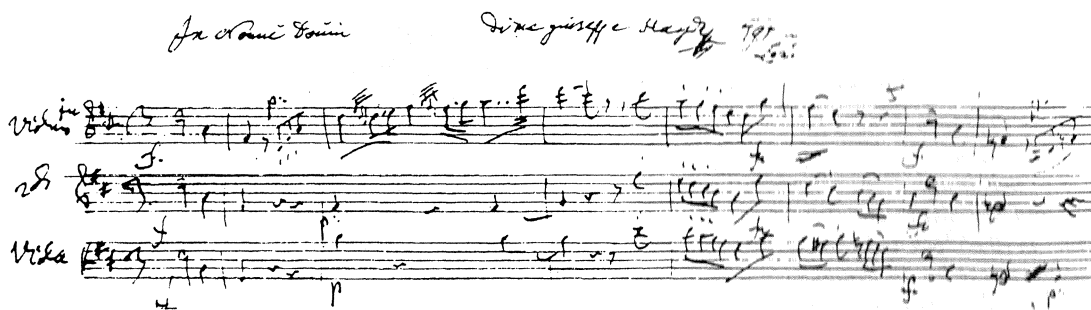 In Nomine Domini di me giuseppe Haydn 791
Violino
p:
f.
2do
f
p:
Viola
p
f.
p: